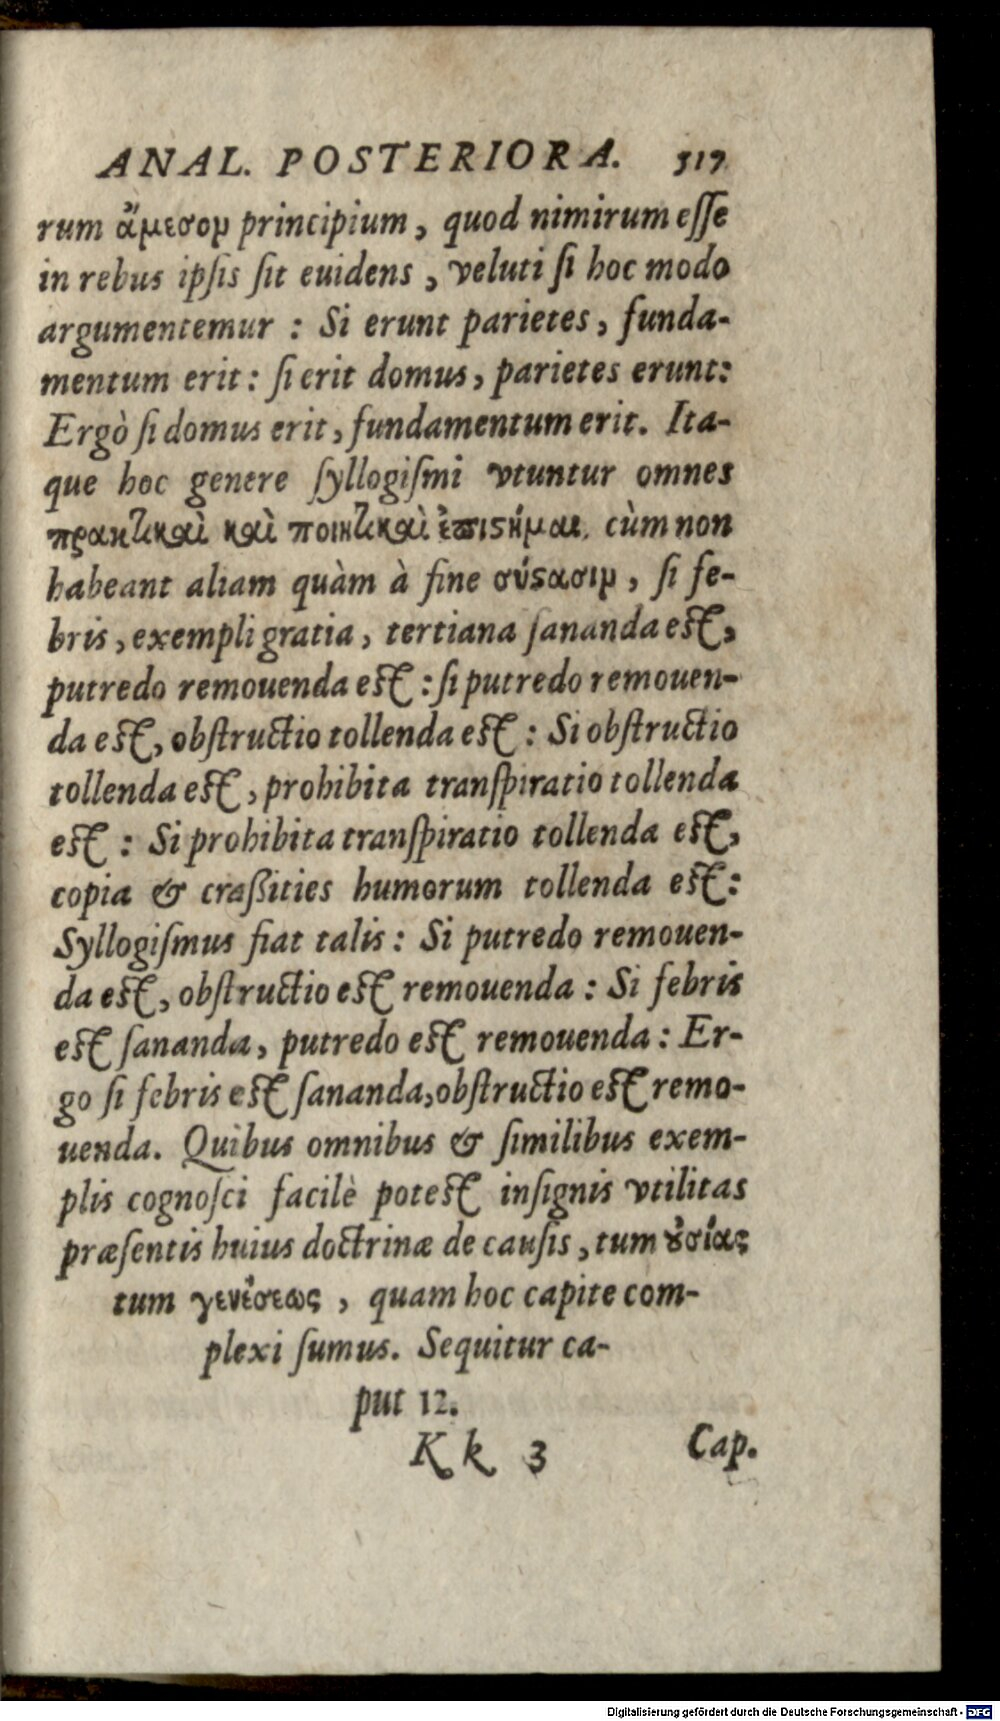 ANAL. POSTERIORA. 517
rum ἄμεσον principium, quod nimirum eſſe
in rebus ipſis ſit euidens, veluti ſi hoc modo
argumentemur : Si erunt parietes, funda-
mentum erit: ſi erit domus, parietes erunt:
Ergò ſi domus erit, fundamentum erit. Ita-
que hoc genere ſyllogiſmi vtuntur omnes
πρακτικαὶ καὶ ποιητικαὶ ἐπιστήμαι. cùm non
habeant aliam quàm à fine σύστασιν, ſi fe-
bris, exempli gratia, tertiana ſananda eſt,
putredo remouenda eſt : ſi putredo remouen-
da eſt, obſtructio tollenda eſt : Si obſtructio
tollenda eſt, prohibita tranſpiratio tollenda
eſt : Si prohibita tranſpiratio tollenda eſt,
copia & craßities humorum tollenda eſt:
Syllogiſmus fiat talis : Si putredo remouen-
da eſt, obſtructio eſt remouenda : Si febris
eſt ſananda, putredo eſt remouenda : Er-
go ſi febris eſt ſananda, obſtructio eſt remo-
uenda. Quibus omnibus & ſimilibus exem-
plis cognoſci facilè poteſt inſignis vtilitas
præſentis huius doctrinæ de cauſis, tum ȣ̓σίας
tum γενέσεως, quam hoc capite com-
plexi ſumus. Sequitur ca-
put 12.
Kk 3 Cap.
Digitalisierung gefördert durch die Deutsche Forschungsgemeinschaft - DFG